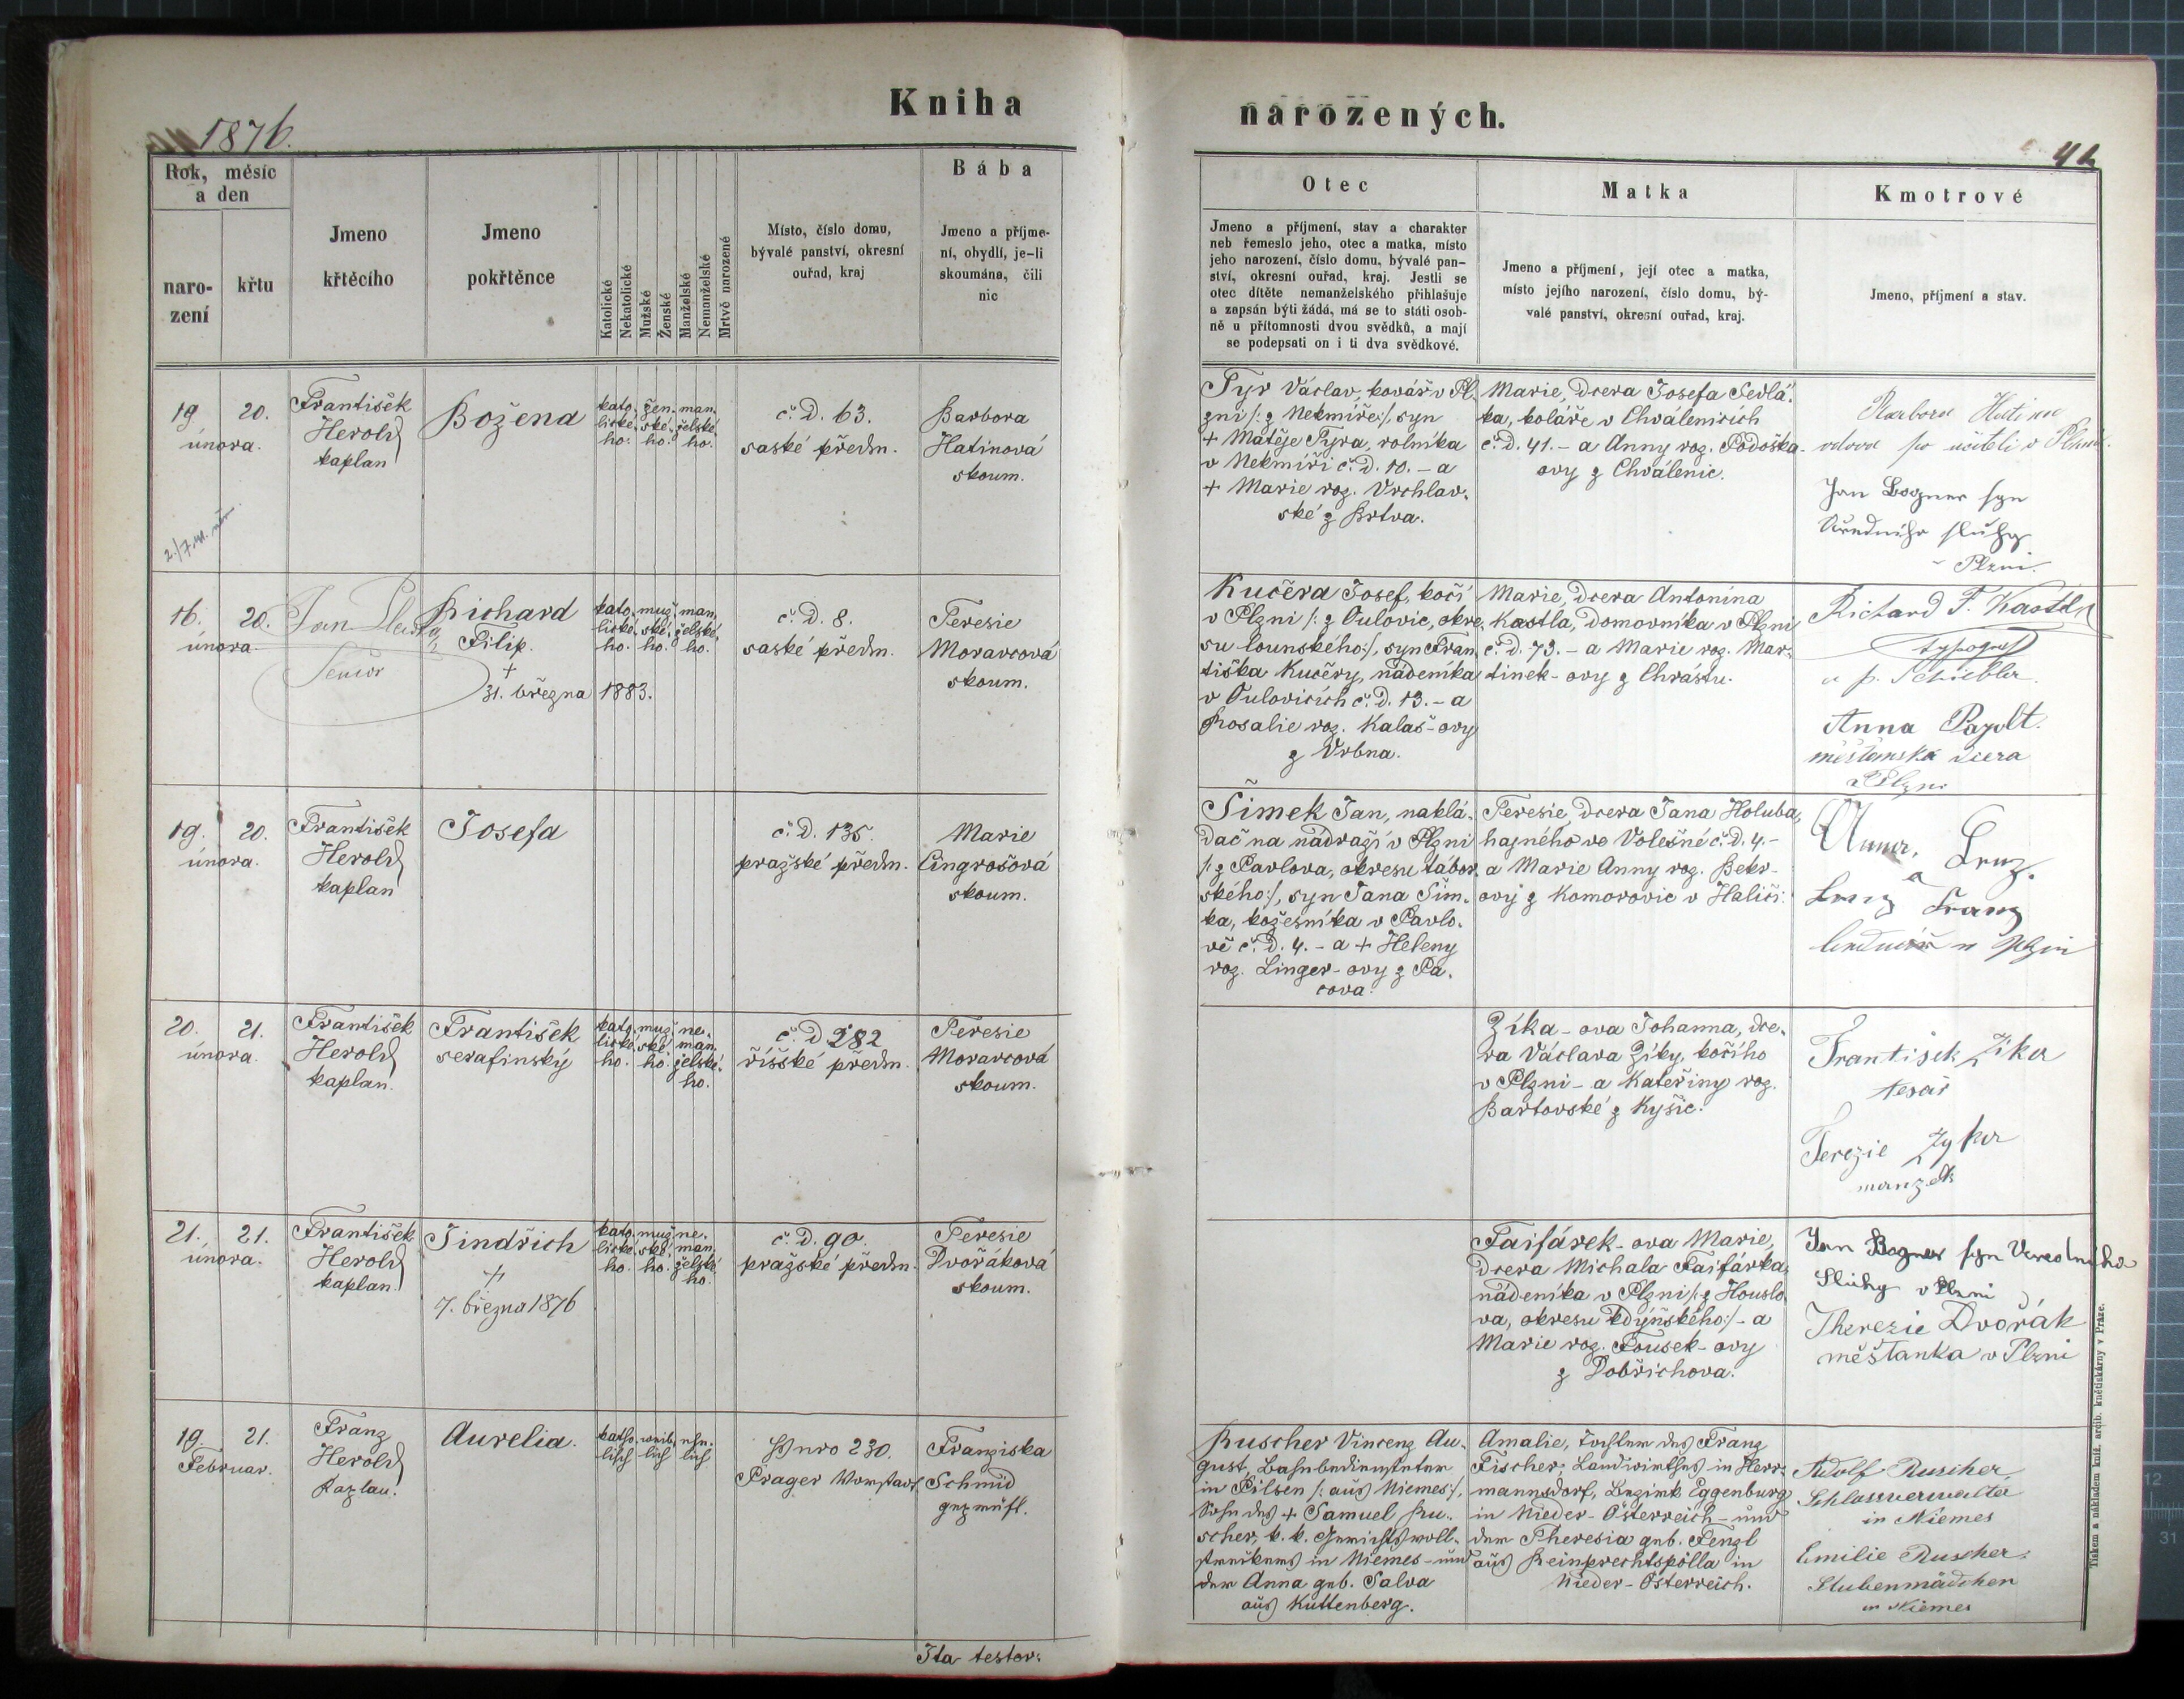 Kniha
narozených.
1876.
42
Rok, měsíc
a den
naro-
zení
křtu
Jmeno
křtěcího
Jmeno
pokřtěnce
Katolické
Nekatolické
Mužské
Ženské
Manželské
Nemanželské
Mrtvě narozené
Místo, číslo domu,
bývalé panství, okresní
ouřad, kraj
Bába
Jmeno a příjme-
ní, obydlí, je-li
skoumána, čili
nic
Otec
Jmeno a příjmení, stav a charakter
neb řemeslo jeho, otec a matka, místo
jeho narození, číslo domu, bývalé pan-
ství, okresní ouřad, kraj. Jestli se
otec dítěte nemanželského přihlašuje
a zapsán býti žádá, má se to státi osob-
ně u přítomnosti dvou svědků, a mají
se podepsati on i ti dva svědkové.
Matka
Jmeno a příjmení, její otec a matka,
místo jejího narození, číslo domu, bý-
valé panství, okresní ouřad, kraj.
Kmotrové
Jmeno, příjmení a stav.
19. 20.
února.
František
Herold
kaplan
Božena
kato. žen. man.
lické. ské. želské
ho. ho.
č. D. 63.
saské předm.
Barbora
Hatinová
skoum.
Tyr Václav, kovář v Pl.
zni /: z Nekmíře :/, syn
+ Matěje Tyra, rolníka
v Nekmíři č. D. 10. - a
+ Marie roz. Vrchlav.
ské z Brtva.
Marie, dcera Josefa Sedlá.
ka, koláře v Chválenicích
č. D. 41. - a Anny roz. Podoška-
ovy z Chválenic.
Barbora
vdova po učiteli v Plzni.
Jan Bogner syn
Úředního sluhy
Plzni.
16. 20.
února.
Jan
Senior
Richard
Filip.
+
31. března 1883.
kato. muž. man.
lické. ské. želské.
ho. ho. ho.
č. D. 8.
saské předm.
Teresie
Moravcová
skoum.
Kučera Josef, kočí
v Plzni /: z Oulovic, okre.
su lounského :/, syn Fran.
tiška Kučery, nádeníka
v Oulovicích č. D. 13. - a
Rosalie roz. Kalaš-ovy
z Vrbna.
Marie, dcera Antonína
Kastla, domovníka v Plzni
č. D. 73. - a Marie roz. Mar-
tinek-ovy z Chrástu.
Richard F. Kastl
typograf
u p. Schiebler
Anna Papolt.
měšťanská dcera
v Plzni
19. 20.
února.
František
Herold
kaplan
Josefa
č. D. 135.
pražské předm.
Marie
Cingrošová
skoum.
Šimek Jan, naklá.
dač na nádraží v Plzni
/: z Pavlova, okresu tábor.
ského :/, syn Jana Šim.
ka, kožešníka v Pavlo.
vě č. D. 4. - a + Heleny
roz. Linger-ovy z Pa.
cova.
Teresie, dcera Jana Holuba,
hajného ve Volešné č. D. 4. -
a Marie Anny roz. Beker-
ový z Komorovic v Haliči.
Anna
a
Franz
20. 21.
února.
František
Herold
kaplan.
František
serafinský
kato. muž. ne.
lické. ské. man.
ho. ho. želské.
ho.
č. D. 282
říšské předm.
Teresie
Moravcová
skoum.
Zíka-ova Johanna, dce.
ra Václava Zíky, kočího
v Plzni - a Kateřiny roz.
Bartovské z Kyšic.
František Zíka
tesař
Terezie Zyka
manželk
21. 21.
února.
František
Herold
kaplan.
Jindřich
+
7. března 1876
kato. muž. ne.
lické. ské. man.
ho. ho. želské
ho.
č. D. 90.
pražské předm.
Teresie
Dvořáková
skoum.
Faifárek-ova Marie,
dcera Michala Faifárka,
nádeníka v Plzni /: z Houslo.
va, okresu kdyňského :/ - a
Marie roz. Fousek-ovy
z Dobřichova.
Jan Bogner syn Úredního
Sluhy v Plzni
Therezie Dvořák
měštanka v Plzni
19. 21.
Februar.
Franz
Herold
Kaplan.
Aurelia.
katho. weib. ehe.
lisch lich lich
Nro 230.
Prager Vorstadt.
Franziska
Schmid
geprüft.
Ruscher Vincenz Au.
gust, Bahnbediensteter
in Pilsen /: aus Niemes :/,
Sohn des + Samuel Ru.
scher, k. k. Gerichtsvoll.
streckers in Niemes - und
der Anna geb. Salva
aus Kuttenberg.
Amalie, Tochter des Franz
Fischer, Landwirthes in Herr-
mannsdorf, Bezirk Eggenburg
in Nieder-Österreich - und
der Theresia geb. Fengl
aus Reinprechtspölla in
Nieder-Österreich.
Adolf Ruscher,
Schlossverwalter
in Niemes
Emilie Ruscher
Stubenmädchen
in Niemes
Ita testor:
Tiskem a nákladem kníž. arcib. knětiskárny v Praze.